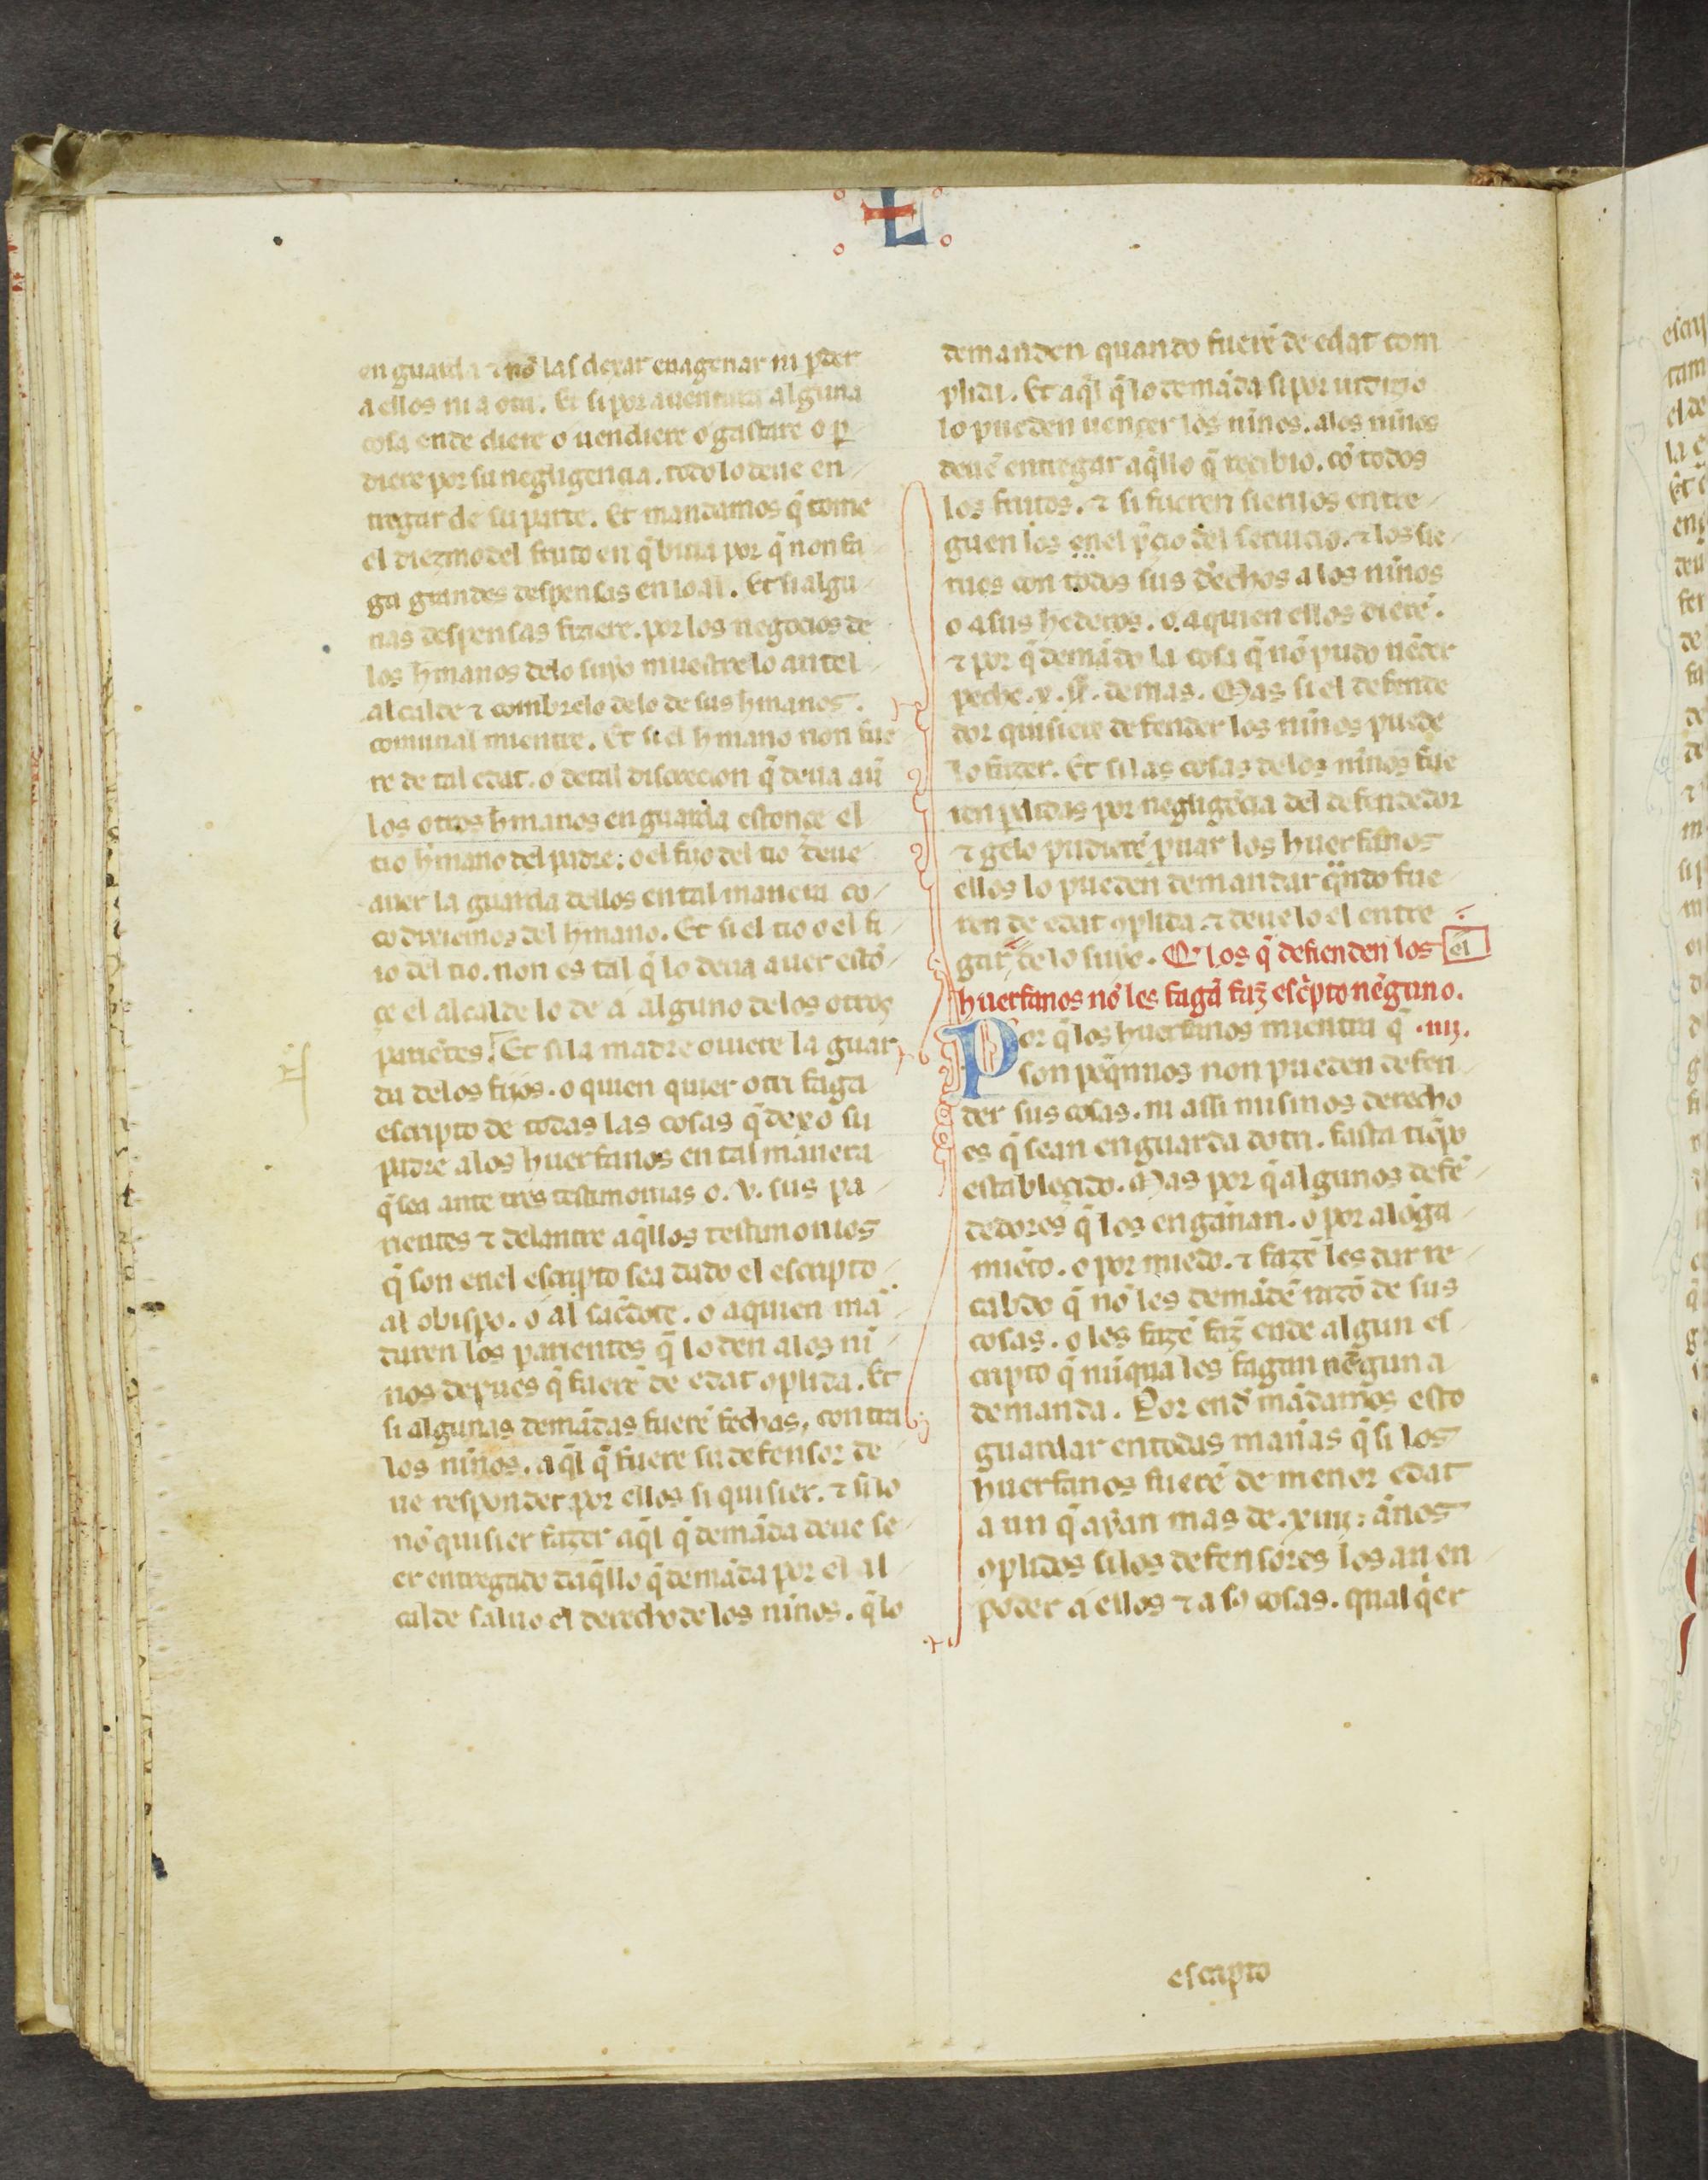 L
en guarda ⁊ nõ las dexar enagenar ni ꝑder
a ellos ni a otri. Et si por auentura alguna
cosa ende diere o uendiere o gastare o ꝑ
diere por su negligencia. todo lo deue en
tregar de su parte. Et mandamos q̃ tome
el diezmo del fruto en q̃ biua por q̃ non fa
ga grandes despensas en lo al. Et si algu
nas despensas fiziere. por los negocios de
los hmanos delo suyo muestrelo antel
alcalde ⁊ combrelo delo de sus hmanos.
comunal mientre. Et si el hmano non fue
re de tal edat. o de tal discrecion q̃ deua aũ
los otros hmanos en guarda estonçe el
tio hmano del padre. o el fijo del tio deue
auer la guarda dellos en tal manera co
co dixiemos del hmano. Et si el tio o el fi
io del tio. non es tal q̃ lo deua auer estõ
çe el alcalde lo de a alguno delos otros
pariẽtes. Et si la madre ouiere la guar
da delos fijos. o quien quier otri faga
escripto de todas las cosas q̃ dexo su
padre alos huerfanos en tal manera
q̃ sea ante tres testimonias o. v. sus pa
rientes ⁊ delantre aq̃llos testimonios
q̃ son enel escripto sea dado el escripto
al obispo. o al sacẽdote. o aquien mã
daren los parientes q̃ lo den alos ni
nos depues q̃ fuerẽ de edat ↄplida. Et
si algunas demãdas fuerẽ fechas, contra
los niños. aq̃l q̃ fuere su defensor de
ue responder por ellos si quisier. ⁊ si lo
nõ quisier fazer aq̃l q̃ demãda deue se
er entregado daq̃llo q̃ demãda por el al
calde saluo el derecho de los niños. q̃ lo
demanden quando fuerẽ de edat com
plida. Et aq̃l q̃ lo demãda si por iudizio
lo pueden uençer los niños. alos niños
deuẽ entregar aq̃llo q̃ recibio. cõ todos
los frutos. ⁊ si fueren sieruos entre
guen los enel p̃cio del seruicio. ⁊ los sie
ruos con todos sus d̃echos a los niños
o a sus hederos. o aquien ellos dierẽ.
⁊ por q̃ demãdo la cosa q̃ nõ pudo uẽcer
peche. x. ss. demas. Mas si el defende
dor quisiere defender los niños puede
lo fazer. Et si las cosas delos niños fue
ren ꝑdidas por negligẽcia del defendedor
⁊ gelo pudierẽ ꝓuar los huerfanos
ellos lo pueden demandar q̃ndo fue
ren de edat ↄplida. ⁊ deue lo el entre
gar de lo suyo. Q̃ los q̃ defienden los el
huerfanos nõ les fagã faz̃ esc̃pto nẽguno.
Por q̃ los huerfanos mientra q̃ .iiij.
son peq̃nnos non pueden defen
der sus cosas. ni assi misinos derecho
es q̃ sean en guarda dotri. fasta tiẽpo
establecido. Mas por q̃ algunos defẽ
dedores q̃ los engañan. o por alõga
miẽto. o por miedo. ⁊ fazẽ les dar re
cabdo q̃ nõ les demãdẽ razõ de sus
cosas. o les fazẽ faz̃ ende algun es
cripto q̃ nũqua les fagan nẽguna
demanda. Por end̃ mãdamos esto
guardar en todas mañas q̃ si los
huerfanos fuerẽ de menor edat
a un q̃ ayan mas de. xiiij. años
ↄplidos si los defensores los an en
poder a ellos ⁊ a sꝯ cosas. qual q̃er
escripto